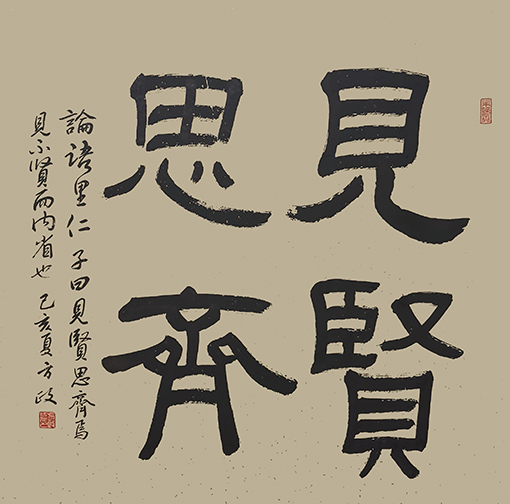 見賢
思齊
論語里仁 子曰見賢思齊焉
見不賢而内省也 己亥夏方政